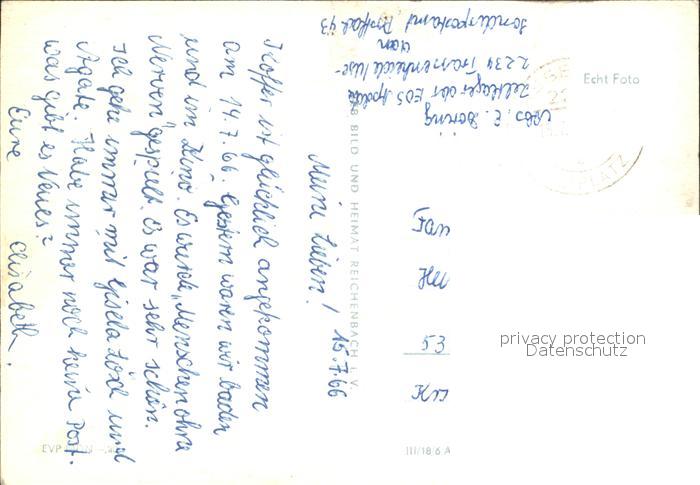 Meine Lieben! 15.7.66
Koffer ist glücklich angekommen
am 14.7.66. Gestern waren wir baden
und im Kino. Es wurde „Menschen ohne
Nerven" gespielt. Es war sehr schön.
Ich gehe immer mit Gisela und
Agate. Habe immer noch keine Post.
Was gibt es Neues?
Eure
Elisabeth.
Abs. E. Döring
Zeltlager der EOS Apolda
2234 Trassenheide /Use-
dom
Sonderpostamt Postfach 43
Echt Foto
PLATZ
BILD UND HEIMAT REICHENBACH I. V.
53
EVP
III/18/6 A
privacy protection
Datenschutz